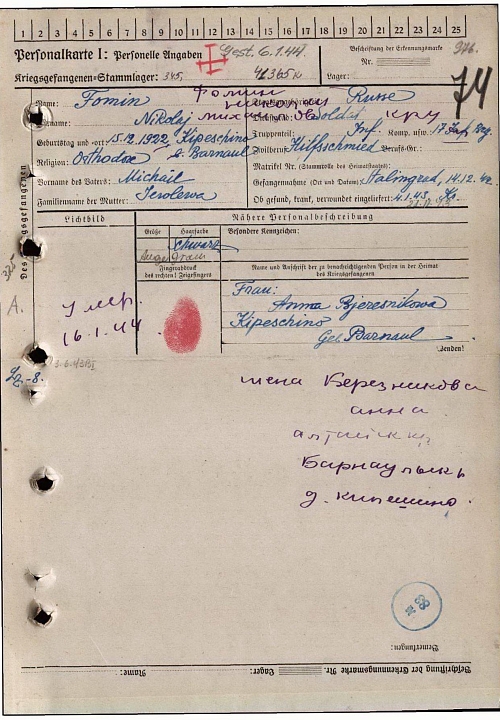 1 2 3 4 5 6 7 8 9 10 11 12 13 14 15 16 17 18 19 20 21 22 23 24 25
Personalkarte I: Personelle Angaben
I Gest. 6.1.44.
Beschriftung der Erkennungsmarke
Nr.
Kriegsgefangenen-Stammlager: 345
Lager:
74
Name: Fomin
Фомин
Russe
Vorname: Nikolaj
николай
Dienstgrad: Soldat
михаил
кру
Geburtstag und -ort: 15.12.1922, Kipeschino
Truppenteil: Inf. Komp. usw.
Religion: Orthodox
G. Barnaul
Zivilberuf: Hilfsschmied Berufs-Gr.:
Matrikel Nr. (Stammrolle des Heimatstaates):
Vorname des Vaters: Michail
Gefangennahme (Ort und Datum): Stalingrad, 14.12.42
Familienname der Mutter:
Ob gesund, krank, verwundet eingeliefert: 4.1.43.
Des Kriegsgefangenen
Lichtbild
Nähere Personalbeschreibung
Größe
Haarfarbe
Besondere Kennzeichen:
schwarz
Fingerabdruck
des rechten! Zeigefingers
Name und Anschrift der zu benachrichtigenden Person in der Heimat
des Kriegsgefangenen
345
A.
Frau:
Anna Bjeresnikowa
Kipeschino
Geb. Barnaul
Wenden!
Умер.
16.1.44
жена Березникова
анна
алтайск
Барнаульск
д. кипешино
88
Bemerkungen:
Beschriftung der Erkennungsmarke Nr.
Lager:
Name: